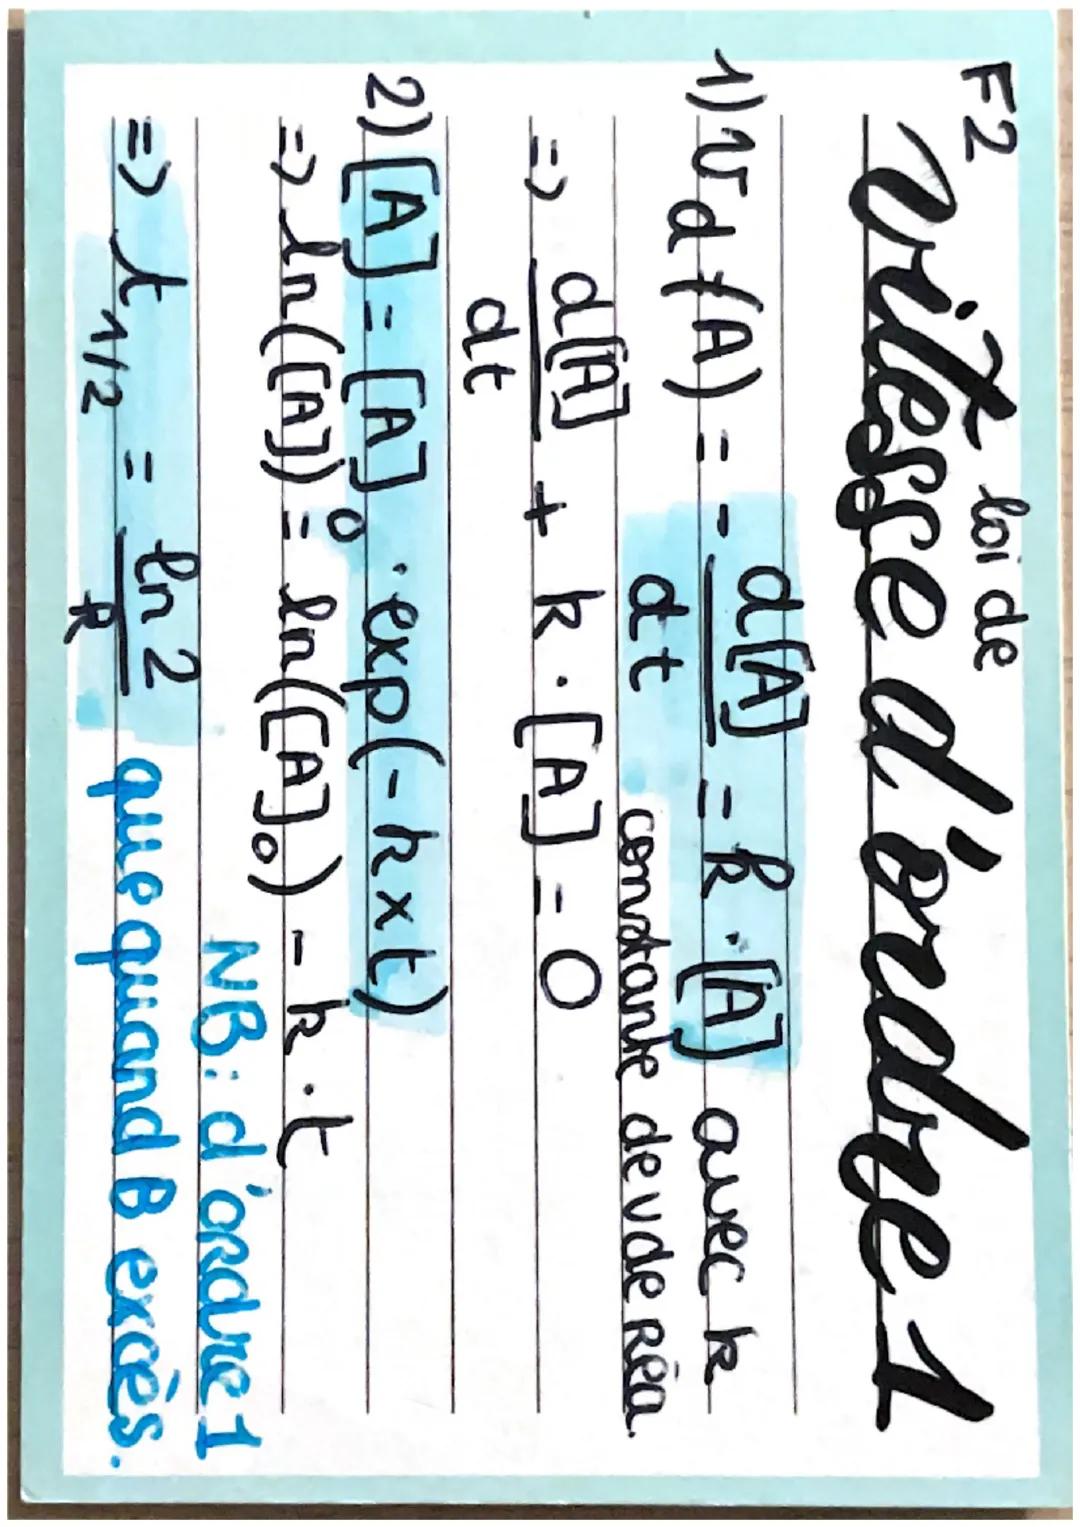 F2 loi de
vitesse d'ordre 1
1) vd(A) = - d[A]/dt = k · [A] avec k
constante de v de réa.
=> d[A]/dt + k · [A] = 0
2) [A] = [A]₀ · exp(-k×t)
=> ln([A]) = ln([A]₀) - k · t
NB: d'ordre 1
=> t1/2 = ln 2/k que quand B excès.